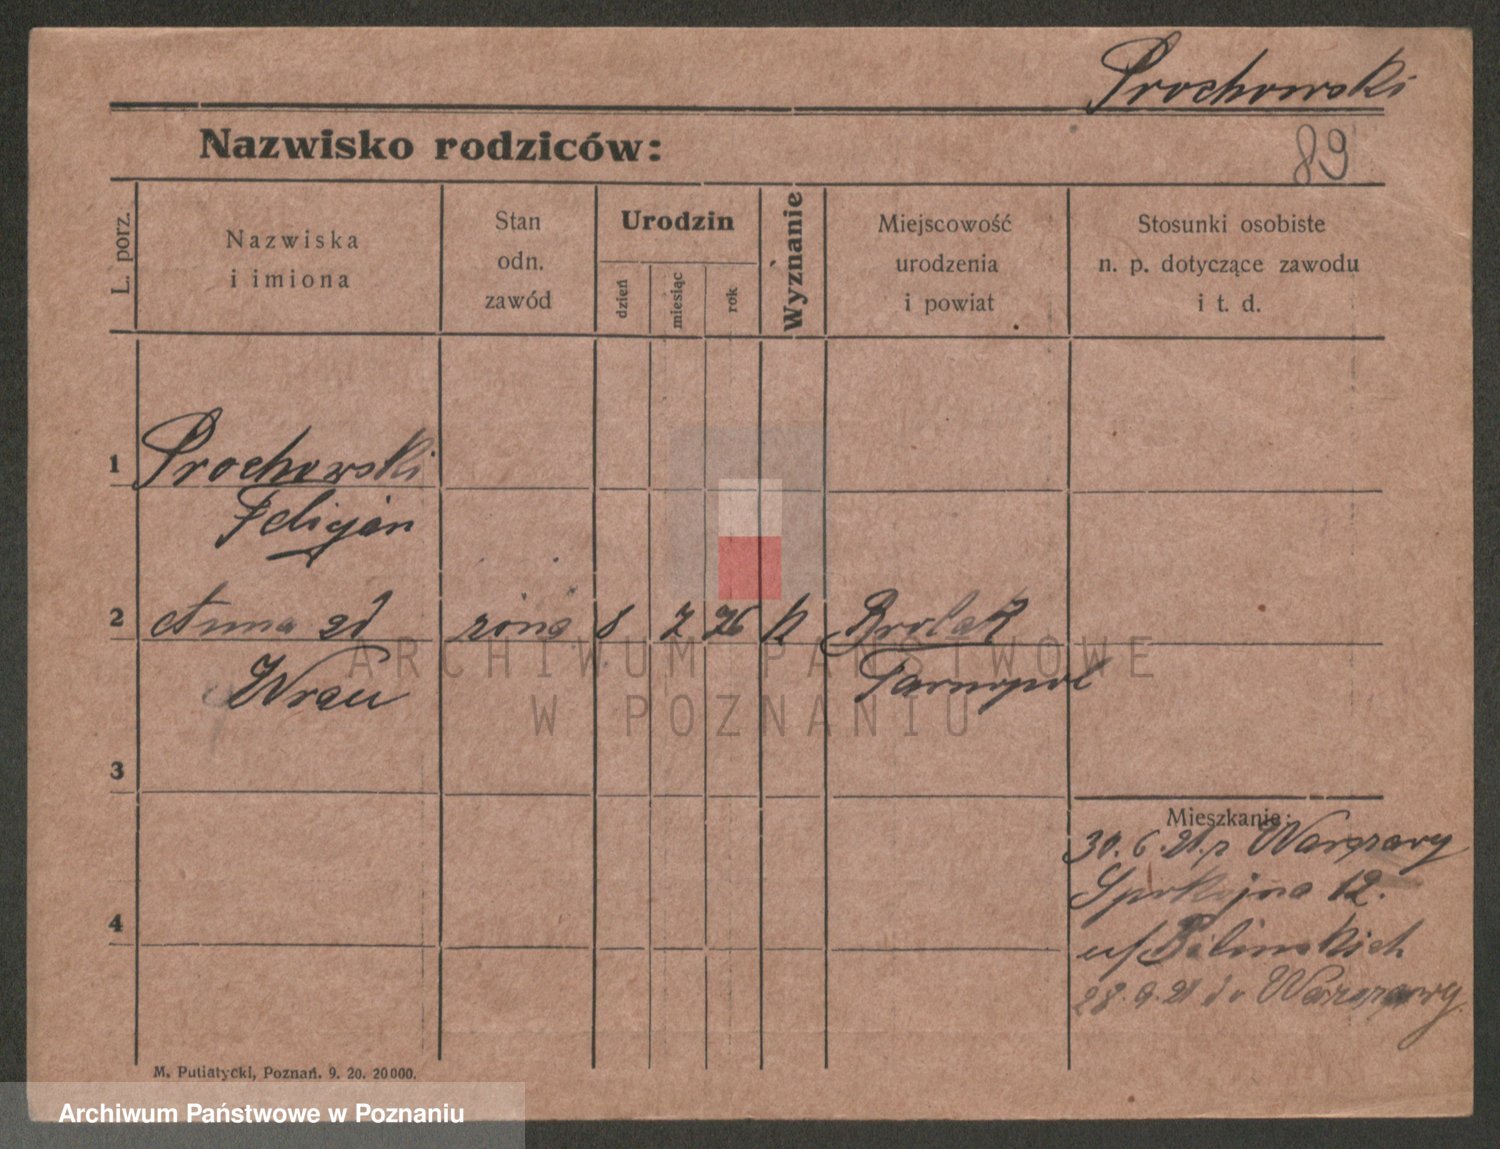 Prochowski
Nazwisko rodziców:
89
L. porz.
Nazwiska
i imiona
Stan
odn.
zawód
Urodzin
dzień
miesiąc
rok
Wyznanie
Miejscowość
urodzenia
i powiat
Stosunki osobiste
n. p. dotyczące zawodu
i t. d.
1 Prochowski
Felicjan
2 Anna zd żona 8 7 76 k
Wrau Tarnopol
ARCHIWUM PAŃSTWOWE
W POZNANIU
3
Mieszkanie:
30.6.21. z Warszawy
Spokojna 12.
4
u/ Bilinskich
28.9.21 do Warszawy
M. Putiatycki, Poznań. 9. 20. 20000.
Archiwum Państwowe w Poznaniu